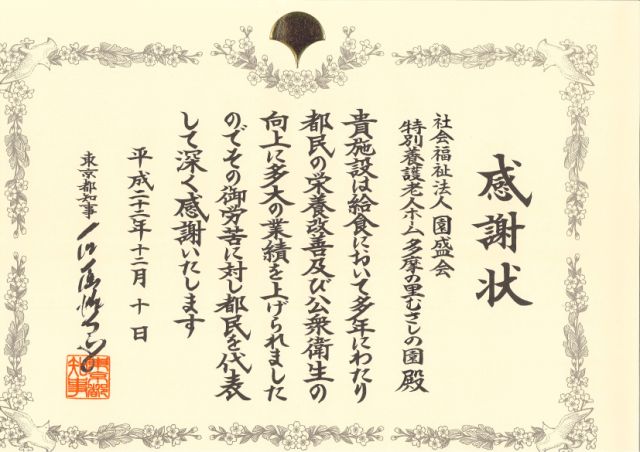 感謝状
社会福祉法人 園盛会
特別養護老人ホーム 多摩の里むさしの園 殿
貴施設は給食において多年にわたり
都民の栄養改善及び公衆衛生の
向上に多大の業績を上げられました
のでその御労苦に対し都民を代表
して深く感謝いたします
平成二十二年十二月十日
東京都知事
東京都
知事